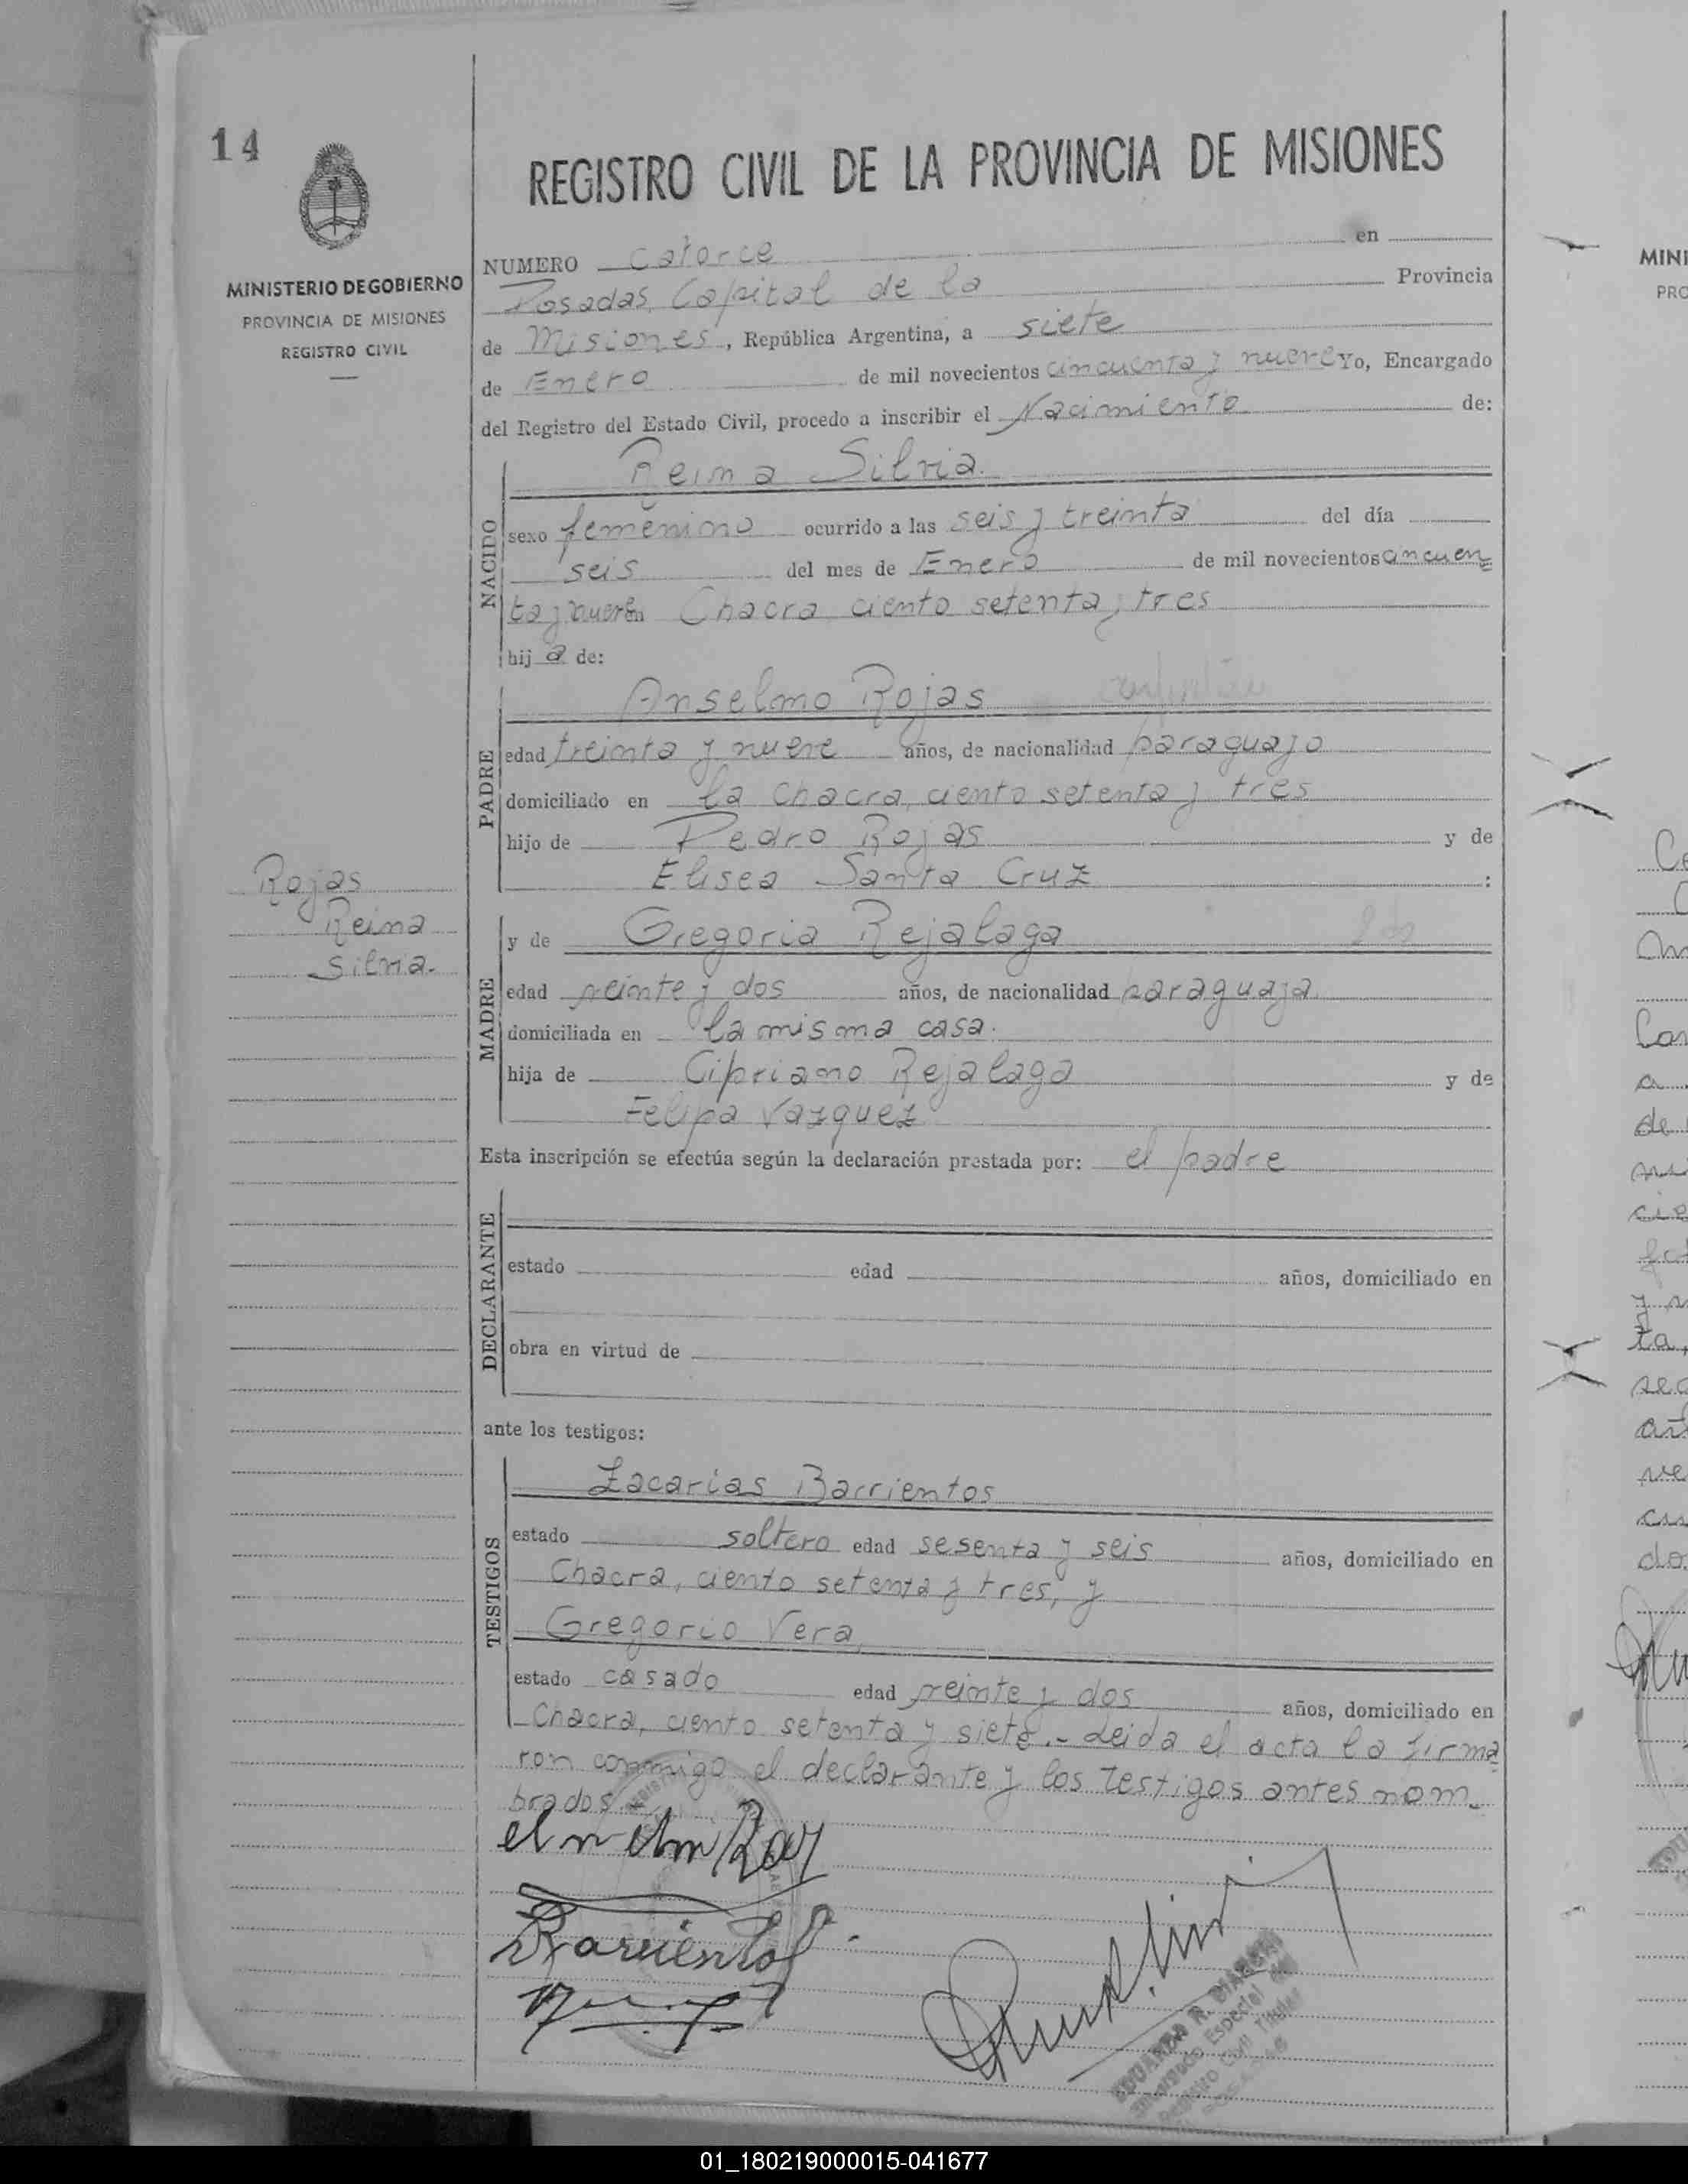 14
REGISTRO CIVIL DE LA PROVINCIA DE MISIONES
MINISTERIO DE GOBIERNO
PROVINCIA DE MISIONES
REGISTRO CIVIL
NUMERO catorce en
Posadas, Capital de la Provincia
de Misiones, República Argentina, a siete
de Enero de mil novecientos cincuenta y nueve Yo, Encargado
del Registro del Estado Civil, procedo a inscribir el Nacimiento de:
NACIDO
Reina Silvia.
sexo femenino ocurrido a las seis y treinta del día
seis del mes de Enero de mil novecientos cincuen
ta y nueve en Chacra ciento setenta y tres
hij a de:
PADRE
Anselmo Rojas
edad treinta y nueve años, de nacionalidad paraguayo
domiciliado en la Chacra, ciento setenta y tres
hijo de Pedro Rojas y de
Elisea Santa Cruz :
Rojas
Reina
Silvia.
MADRE
y de Gregoria Rejalaga
edad veinte y dos años, de nacionalidad paraguaya
domiciliada en la misma casa.
hija de Cipriano Rejalaga y de
Felipa Vazquez
Esta inscripción se efectúa según la declaración prestada por: el padre
DECLARANTE
estado edad años, domiciliado en
obra en virtud de
ante los testigos:
TESTIGOS
Zacarias Barrientos
estado soltero edad sesenta y seis años, domiciliado en
Chacra, ciento setenta y tres, y
Gregorio Vera,
estado casado edad veinte y dos años, domiciliado en
Chacra, ciento setenta y siete.- Leida el acta la firma
ron conmigo el declarante y los testigos antes nom_
brados.
Barrientos
EDUARDO R.
Especial del
Registro Civil Titular
POSADAS
MINI
PRO
01_180219000015-041677